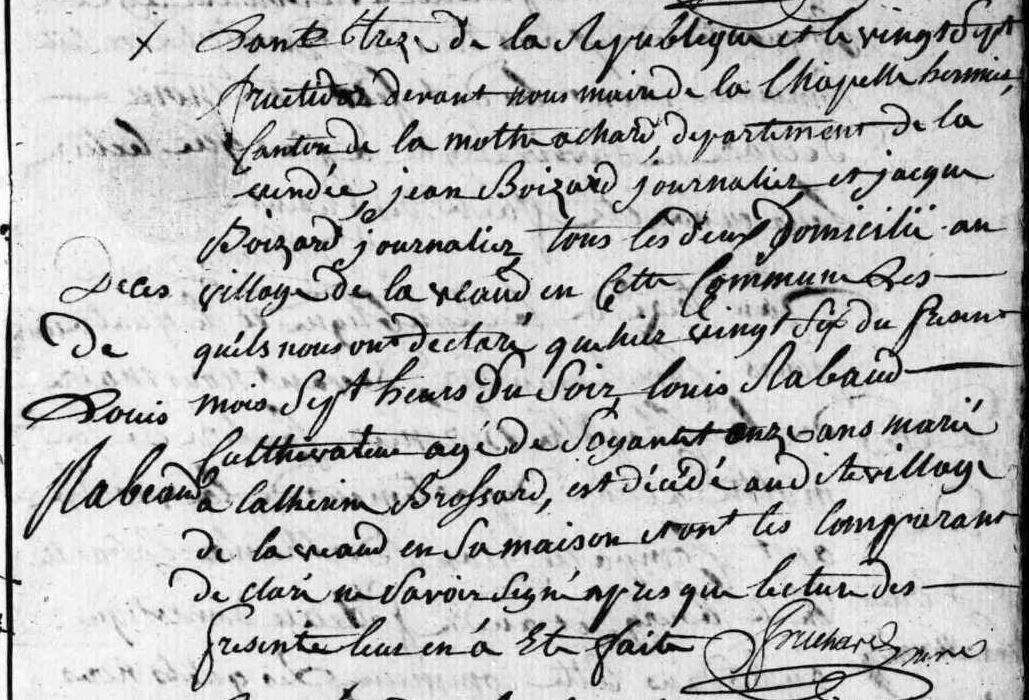 x Lante treze de la Republique et le vingt Sept
fructidor devant nous maire de la Chapelle hermier,
Canton de la mothe achard, departement de la
vendée jean Boizard journalier et jacque
Boizard journalier tous les deux Domicilié au
Deces village de la veaud en Cette Commune Les
De quels nous ont declaré que hier vingt Six du present
Louis mois Sept heurs Du Soir, louis Rabaud
Rabeaud Culthivateur agé de Soyantet onze ans marié
à Catherine Brossard, est décédé audite village
de la veaud en Sa maison et ont les Comparant
de claré ne Savoir Signé apres que lecture des
presente leur en à Eté faite Pruchard maire